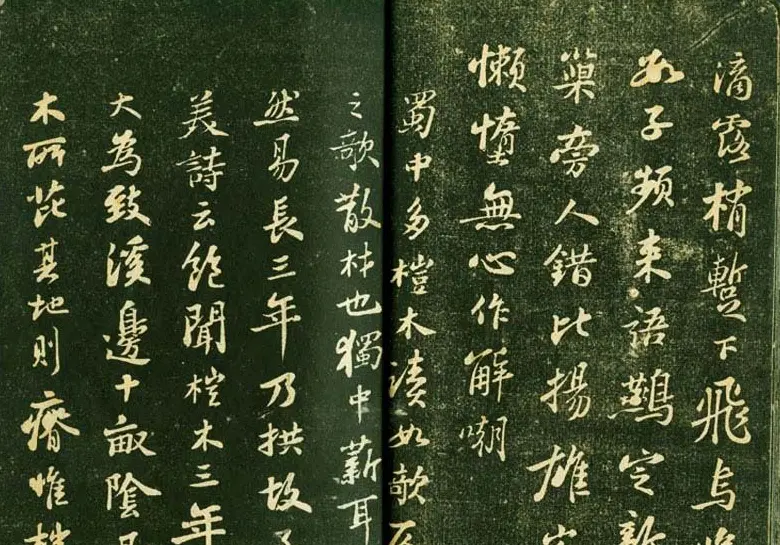 滴露梢暫下飛烏
數子頻來語鷰定新
巢旁人錯比揚雄宅
懶惰無心作解嘲
蜀中多榿木讀如欹仄
之欹散材也獨中薪耳
然易長三年乃拱故子
美詩云飽聞榿木三年
大為致溪邊十畝陰凡
木所芘其地則瘠惟榿